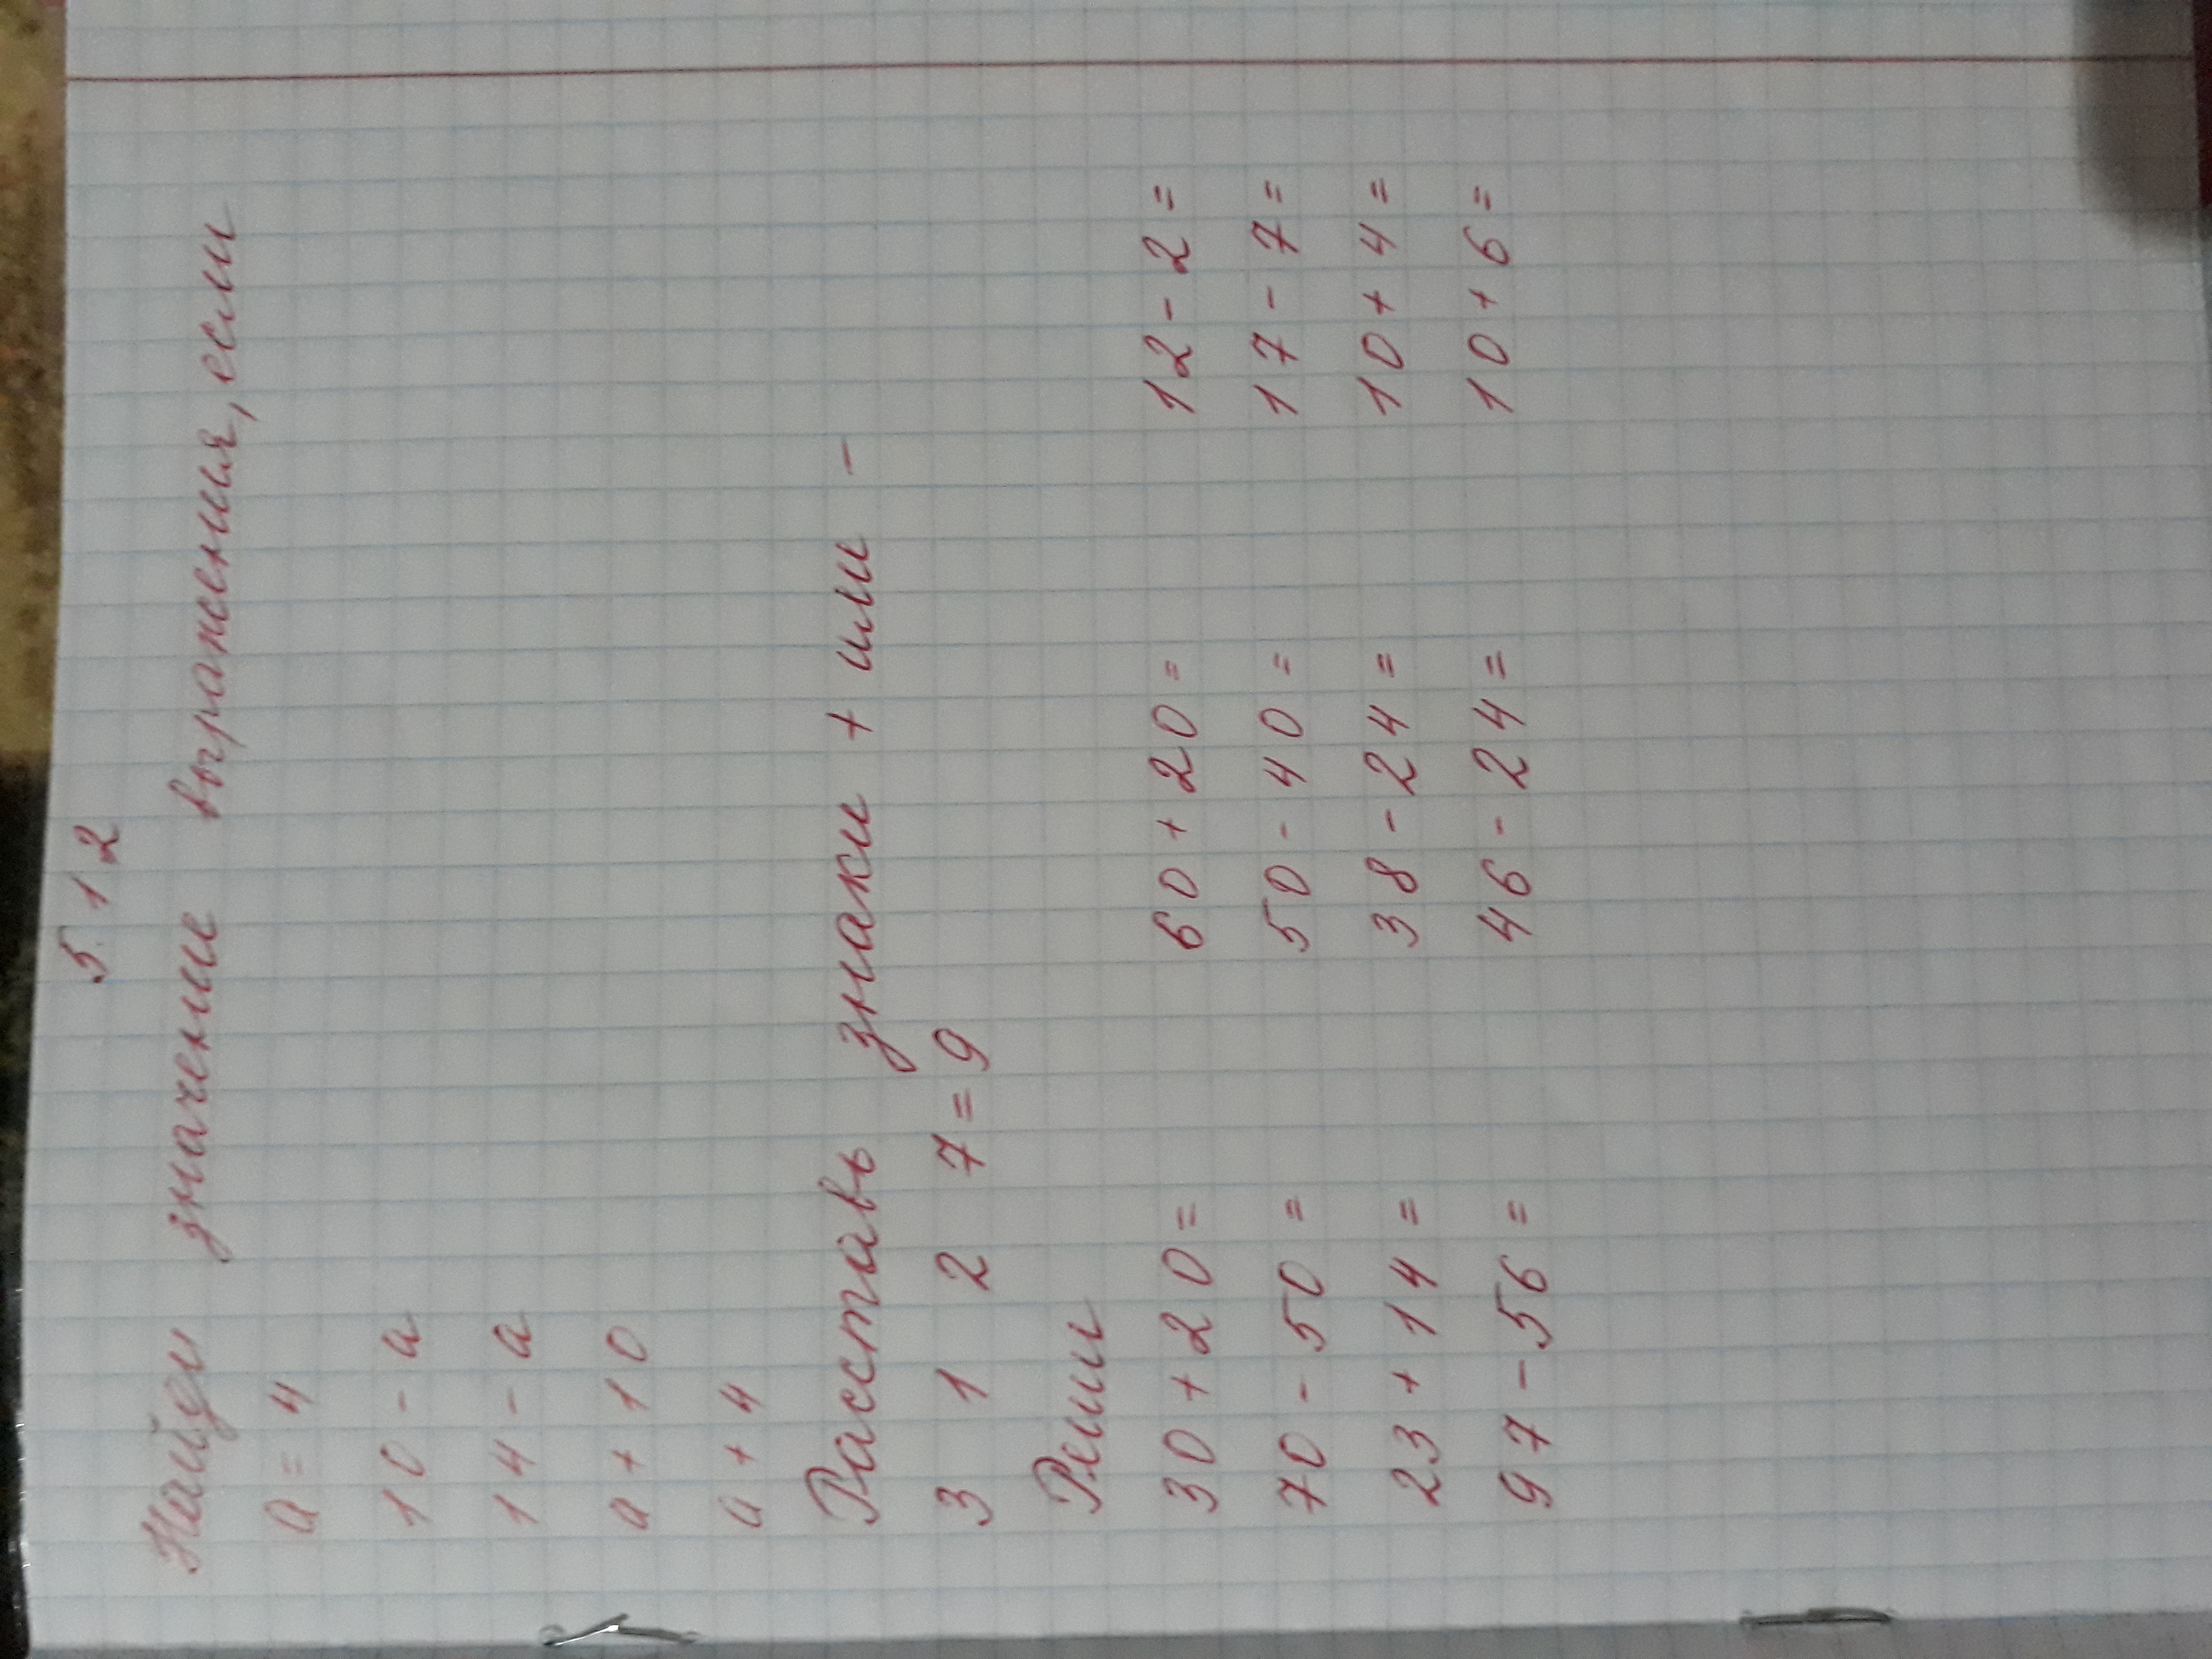 5. 12
Найди значение выражения, если
a = 4
10 - a
14 - a
a + 10
a + 4
Расставь знаки + или -
3 1 2 7 = 9
Реши
30 + 20 = 60 + 20 = 12 - 2 =
70 - 50 = 50 - 40 = 17 - 7 =
23 + 14 = 38 - 24 = 10 + 4 =
97 - 56 = 46 - 24 = 10 + 6 =